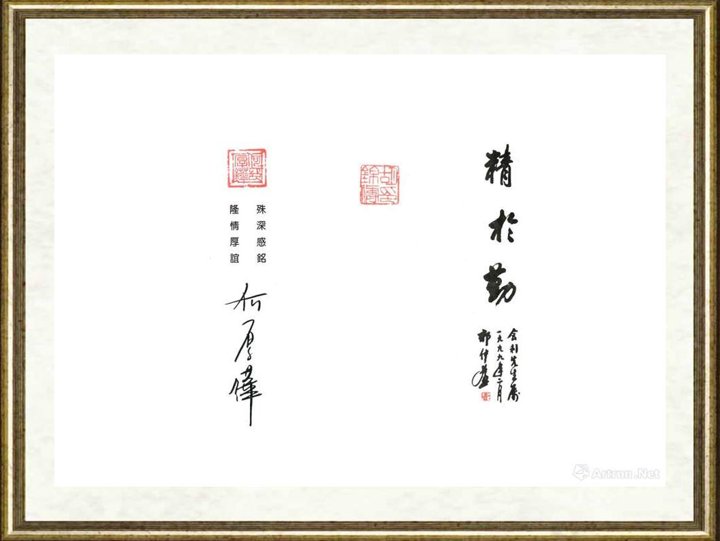 精於勤
先生
一九九九年二月
殊深感銘
隆情厚誼
何厚鏵
Artron.Net